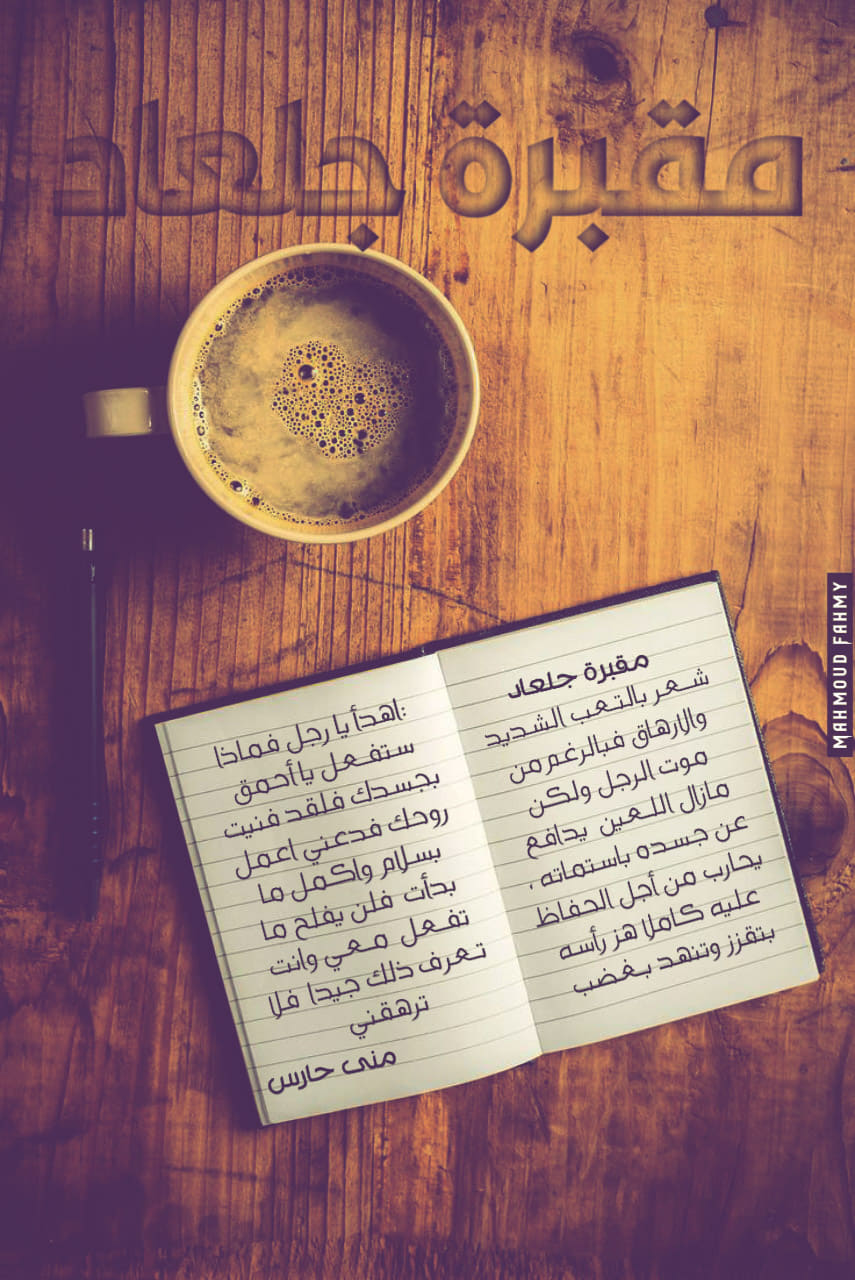 مقبرة جلعاد
مقبرة جلعاد
شعر بالتعب الشديد
والارهاق فبالرغم من
موت الرجل ولكن
مازال اللعين يدافع
عن جسده باستماته ،
يحارب من أجل الحفاظ
عليه كاملا هز رأسه
بتقزز وتنهد بغضب
:اهدأ يا رجل فماذا
ستفعل يا أحمق
بجسدك فلقد فنيت
روحك فدعني اعمل
بسلام واكمل ما
بدأت فلن يفلح ما
تفعل معي وانت
تعرف ذلك جيدا فلا
ترهقني
منى حارس
MAHMOUD FAHMY